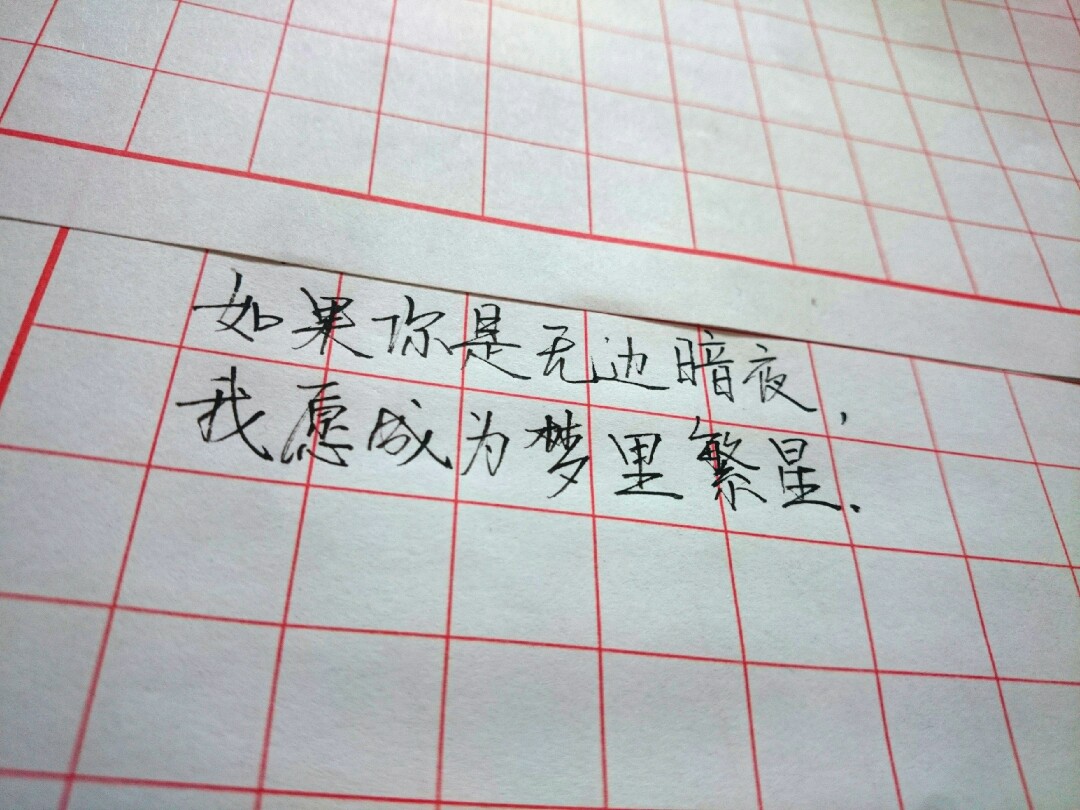 如果你是无边暗夜,
我愿成为梦里繁星.